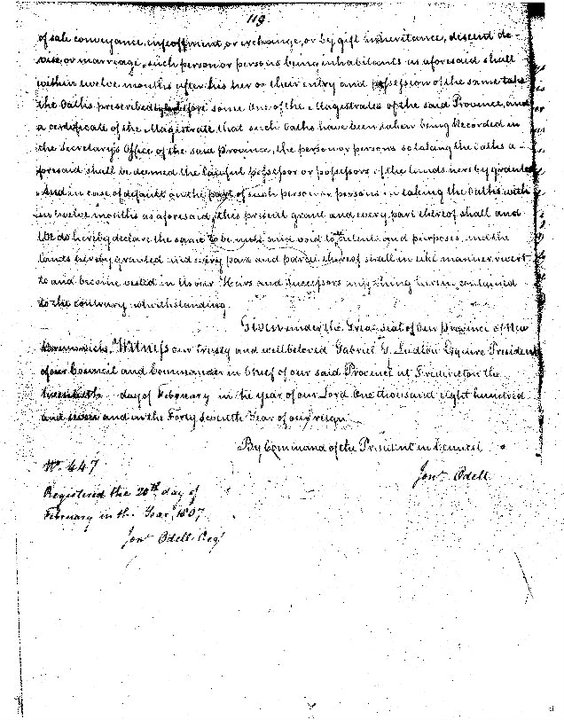 119
of sale conveyance, enfeoffment, or exchange, or by gift inheritance, descent de-
vise, or marriage, such person or persons being inhabitants as aforesaid shall
within twelve months after his her or their entry and possession of the same take
the Oaths prescribed before some one of the Magistrates of the said Province, and
a certificate of the Magistrate that such Oaths have been taken being Recorded in
the Secretary's Office of the said Province, the person or persons so taking the oaths a-
foresaid shall be deemed the lawful possessor or possessors of the lands hereby granted
And in case of default on the part of such person or persons in taking the Oaths with
in twelve months as aforesaid, this present grant and every part thereof shall and
We do hereby declare the same to be null and void to intents and purposes, and the
lands hereby granted and every part and parcel thereof shall in like manner revert
to and become vested in Us our Heirs and Successors any thing herein contained
to the contrary notwithstanding.
Given under the Great Seal of Our Province of New
Brunswick, Witness our trusty and well beloved Gabriel G. Ludlow Esquire President
of our Council and Commander in Chief of our said Province at Fredericton the
twentieth day of February in the Year of our Lord One thousand eight hundred
and seven and in the Forty seventh Year of our reign.
By Command of the President in Council
No. 447
Jonn. Odell
Registered the 20th day of
February in the Year, 1807
Jonn. Odell Regr.